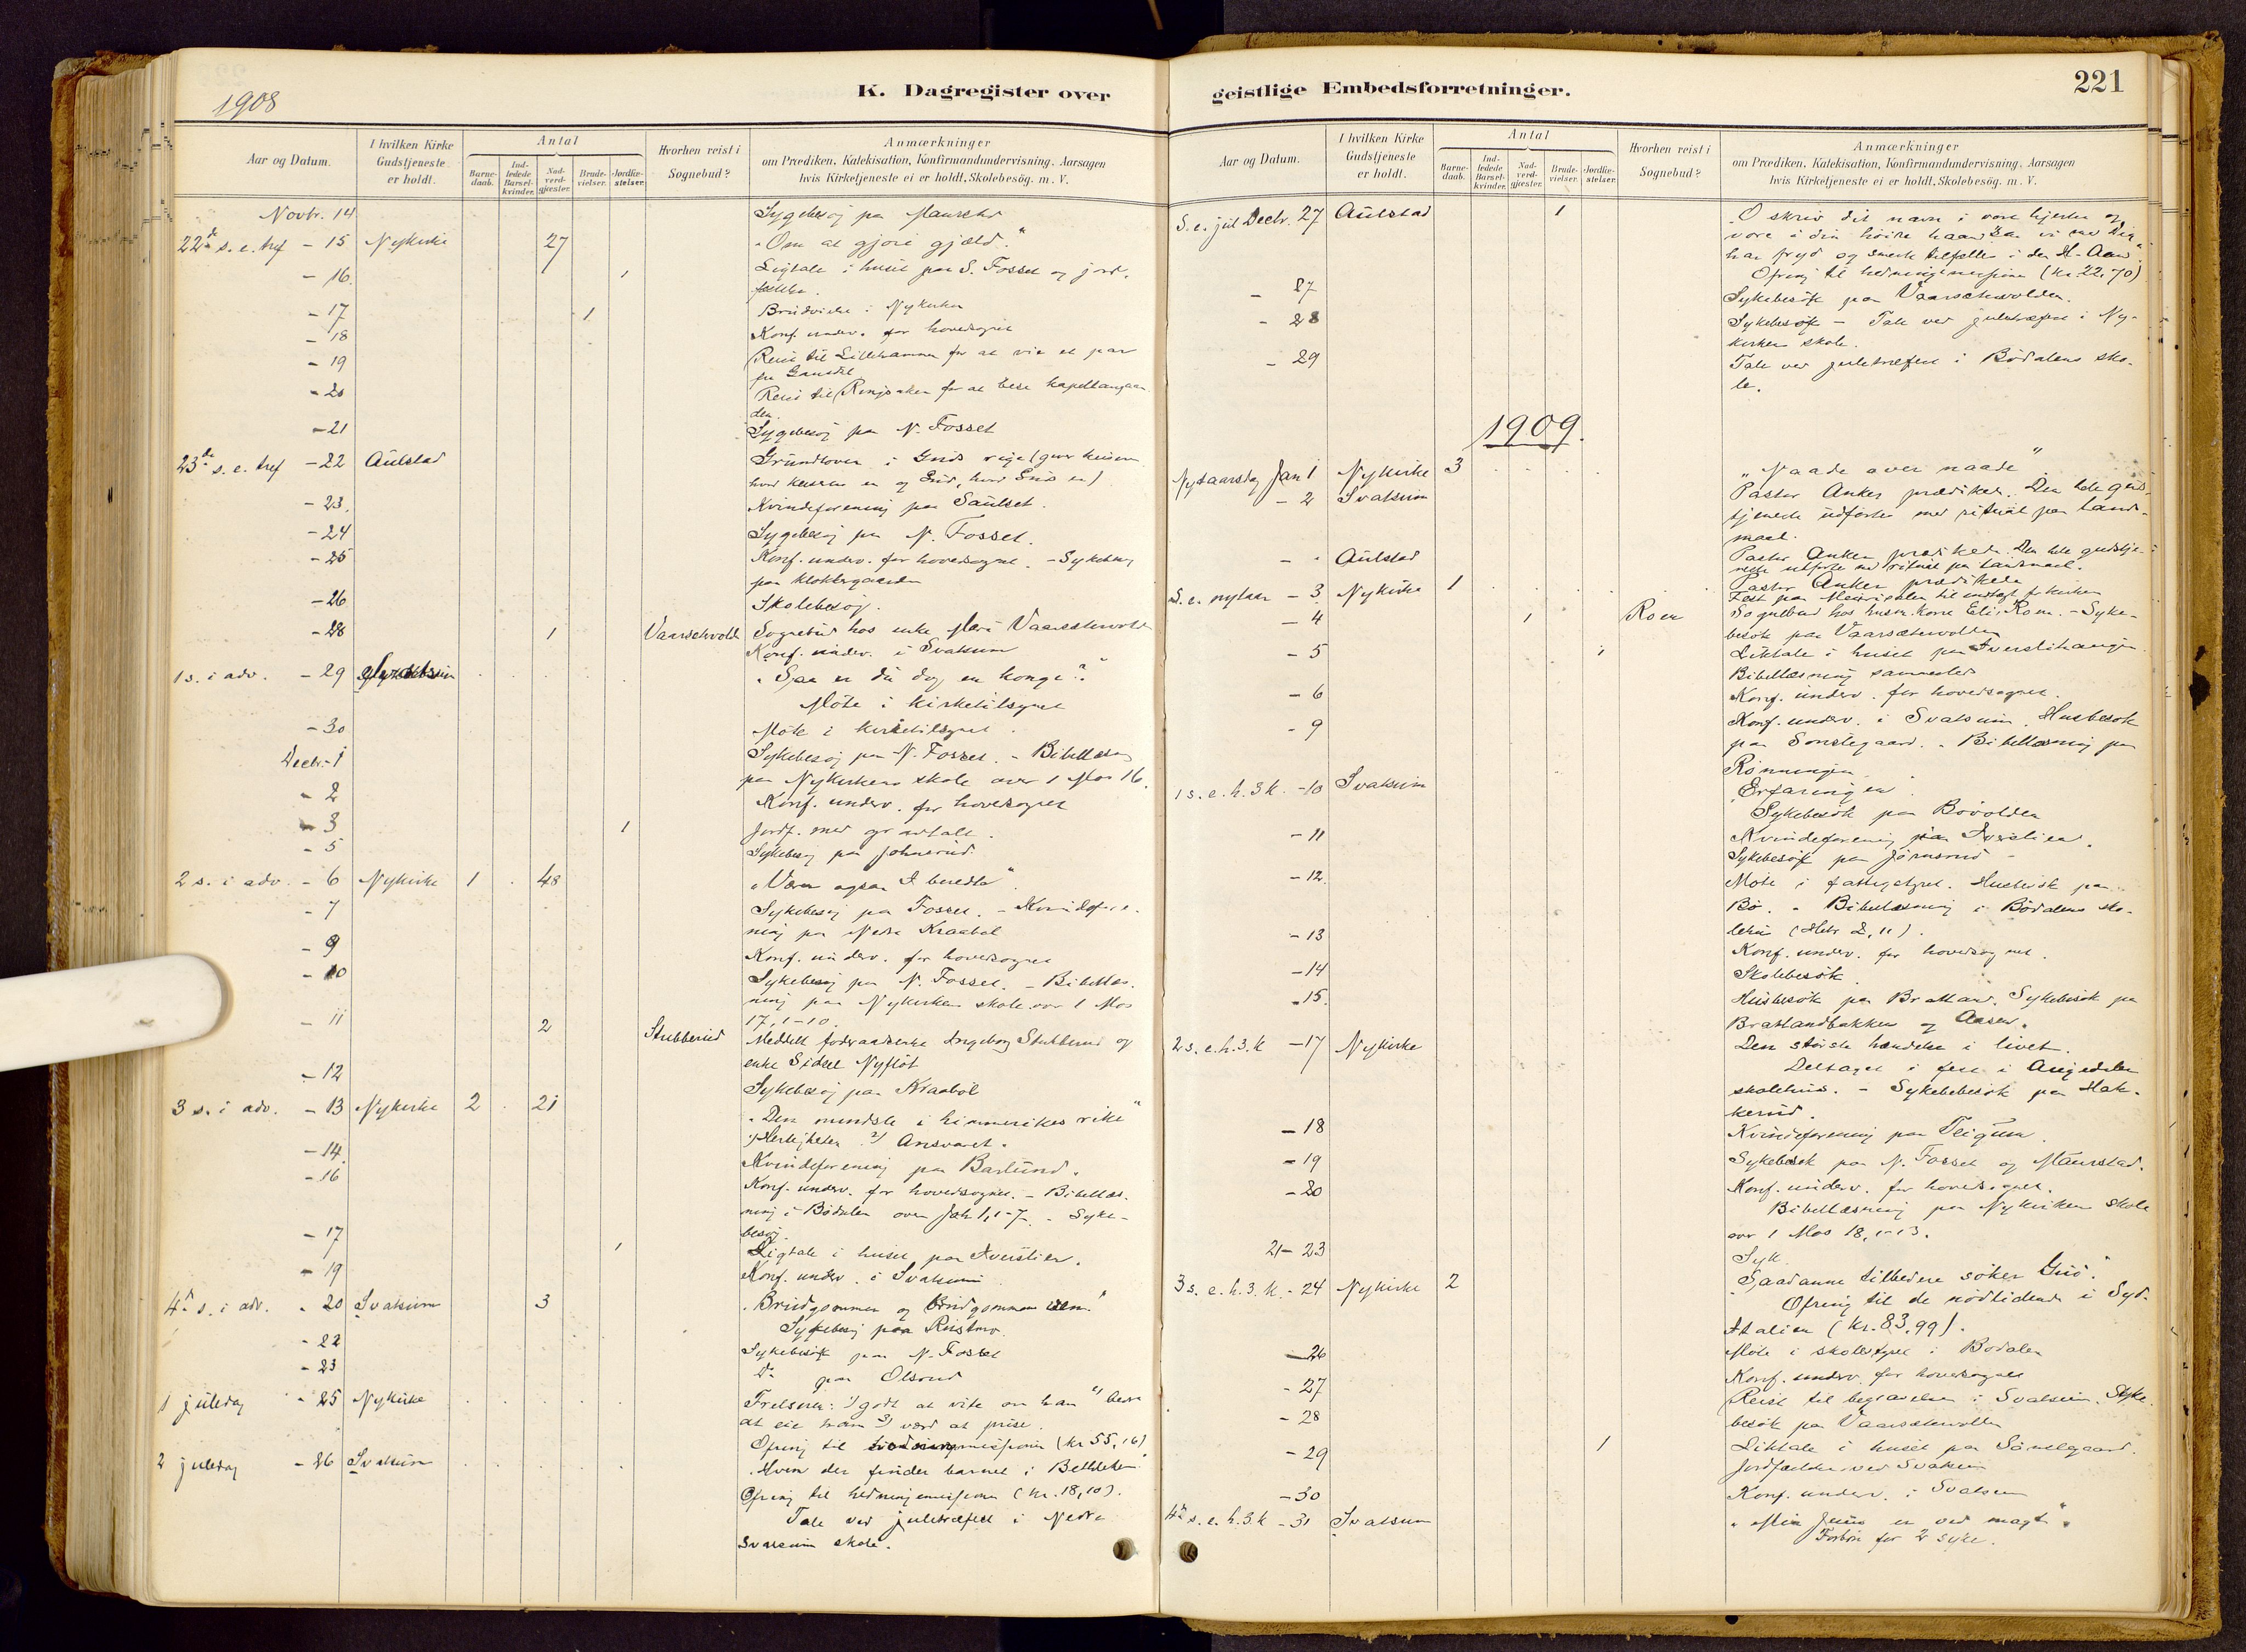 1908
K. Dagregister over
Aar og Datum.
I hvilken Kirke Gudstjeneste er holdt.
Antal
Barne-daab.
Ind-ledede Barsel-kvinder.
Nad-verd-gjæster.
Brude-vielser.
Jordfæ-stelser.
Hvorhen reist i Sognebud?
Anmærkninger
om Prædiken, Katekisation, Konfirmandundervisning, Aarsagen
hvis Kirketjeneste ei er holdt, Skolebesög. m. V.
Novbr. 14 Sygebesøg paa
22de s. e. tref - 15 Nykirke 27 "Om at gjøre gjæld."
- 16. 1 Ligtale i huset paa S. Fosset og jord-
fæstelse.
- 17 1 Brudvielse i Nykirken
- 18 Konf. underv. for hovedsognet
- 19 Reist til Lillehammer for at vie et par
fra Gausdal
- 20 Reist til Ringsaker for at bese kapellangaar
den.
- 21 Sygebesøg paa N. Fosset
23de s. e. tref - 22 Aulstad Grundloven i Guds rige (giver keiseren
hvad keiserens er og Gud, hvad Guds er)
- 23. Kvindeforening paa Saulset.
- 24 Sygebesøg paa N. Fosset.
- 25 Konf. underv. for hovedsognet. - Sykebesøg
paa Klokkergaarden
- 26 Skolebesøg.
- 28 1 Sognebud hos enke
Konf. underv. i Svatsum
1 s. i adv. - 29 "Saa er du dog en konge"."
Møte i kirketilsynet
- 30 Møte i kirketilsynet.
Decbr. - 1 Sykebesøg paa N. Fosset. - Bibellæsning
paa Nykirkens skole over 1 Mos 16.
- 2 Konf. underv. for hovedsognet
- 3 1 Jordf. med gravtale.
- 5 Sykebesøg paa Johnsrud.
2 s. i adv. - 6 Nykirke 1 48 "Vær ogsaa I beredte".
- 7 Sykebesøg paa Fosset. - Kvindefore-
ning paa Nedre Kraabøl
- 9 Konf. underv. for hovedsognet
- 10 Sykebesøg paa N. Fosset. - Bibellæs-
ning paa Nykirkens skole over 1 Mos
17, 1-10.
- 11 2 Stubberud Meddelt Ingeborg Stubberud og
enke Sidsel Nyflöt
- 12 Sykebesøg paa Kraabøl
3 s. i adv. - 13 Nykirke 2 21 "Den mindste i himmerikes rike"
1) Herligheten 2) Ansvaret.
- 14. Kvindeforening paa Baslund.
- 16 Konf. underv. for hovedsognet. - Bibellæs-
ning i Bødalen over Joh 1, 1-7. - Syke-
besøg.
- 17 1 Ligtale i huset paa Iverslien.
- 19 Konf. underv. i Svatsum
4de s. i adv. - 20 Svatsum 3 "Brudgommen og Brudgommens ven."
Sykebesøg paa
- 22 Sykebesøk paa N. Fosset
- 23 Do paa Olsrud
1 juledag - 25 Nykirke Frelseren: 1) godt at vite om ham 2) bedre
at eie ham 3) værd at prise.
Ofring til (kr 55,16)
2 juledag - 26 Svatsum "Hvem der finder barnet i Betlehem"
Ofring til hedningemissionen (kr. 18,10).
Tale ved juletræfest i Nedre
Svatsum skole.
geistlige Embedsforretninger.
221
Aar og Datum.
I hvilken Kirke Gudstjeneste er holdt.
Antal
Barne-daab.
Ind-ledede Barsel-kvinder.
Nad-verd-gjæster.
Brude-vielser.
Jordfæ-stelser.
Hvorhen reist i Sognebud?
Anmærkninger
om Prædiken, Katekisation, Konfirmandundervisning, Aarsagen
hvis Kirketjeneste ei er holdt, Skolebesög. m. V.
S. e. jul Decbr. 27 Aulstad 1 O skriv dit navn i vore hjerter og
vore i din høire haand
har fryd og
Ofring til hedningemissionen (kr. 22,70)
- 27 Sykebesøk paa
- 28 Sykebesøk - Tale ved juletræfest i Ny-
kirkens skole.
- 29 Tale ved juletræfest i Bødalens sko-
le.
1909.
Nytaarsdag Jan 1 Nykirke 3 "Naade over naade"
- 2 Svatsum Pastor Anker prædiket. Den hele guds-
tjeneste udførtes med ritual paa lands-
maal.
- " Aulstad Pastor Anker prædikede. Den hele gudstje-
neste utførtes med ritual paa landsmaal.
S. e. nytaar - 3 Nykirke 1 Pastor Anker prædikede
Fest paa til indtægt for kirken
- 4 1 Roen Sognebud hos Eli Roen. - Syke-
besøk paa
- 5 1 Liktale i huset paa
Bibellæsning sammesteds
- 6 Konf. underv. for hovedsognet.
- 9 Konf. underv. i Svatsum. Husbesøk
paa - Bibellæsning paa
Rønningen
1 s. e. h. 3 k. - 10 Svatsum "Erfaringen"
Sykebesøk paa Bøvolden
- 11 Kvindeforening paa Iverslien.
Sykebesøk paa
- 12. Møte i fattigstyret. Husbesøk paa
Bø. - Bibellæsning i Bødalens sko-
lehus (Hebr 2, 11).
- 13 Konf. underv. for hovedsognet.
- 14 Skolebesøk
- 15. Husbesøk paa Brattland. Sykebesøk paa
Brattlandbakken og Aasen.
2 s. e. h. 3. k - 17 Nykirke Den største hændelse i livet.
Deltaget i fest i
skolehus. - Sykebesøk paa Hak-
kerud.
- 18 Kvindeforening paa
- 19 Sykebesøk paa N. Fosset og
- 20 Konf. underv. for hovedsognet.
Bibellæsning paa Nykirkens skole
over 1 Mos 18, 1-13.
21 - 23 Syk
3 s. e. h. 3. k. - 24 Nykirke 2 "Saadanne tilbedere søker Gud".
Ofring til de nødlidende i Syd-
Italien (kr. 83,99).
- 26 Møte i skolestyret i Bødalen
- 27 Konf. underv. for hovedsognet
- 28 Reist til begravelse i Svatsum. Syke-
besøk paa
- 29 1 Liktale i huset paa
Jordfæstelse ved Svatsum
- 30 Konf. underv. i Svatsum
4de s. e. h. 3 k - 31 Svatsum "Min Jesus er ved magt".
Forbøn for 2 syke.